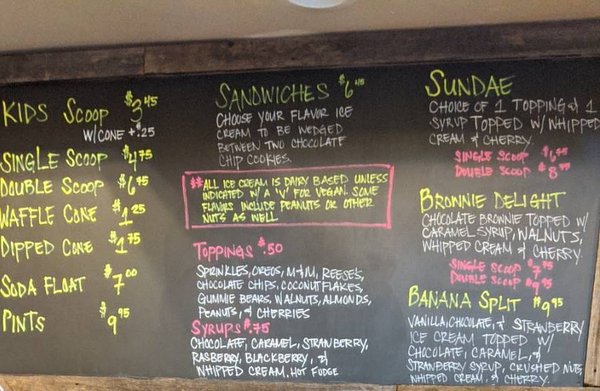 KIDS SCOOP $3.45
W/CONE +$.25
SINGLE SCOOP $4.75
DOUBLE SCOOP $6.45
WAFFLE CONE $1.25
DIPPED CONE $1.75
SODA FLOAT $7.00
PINTS $9.95
SANDWICHES $6.45
CHOOSE YOUR FLAVOR ICE
CREAM TO BE WEDGED
BETWEEN TWO CHOCOLATE
CHIP COOKIES.
**ALL ICE CREAM IS DAIRY BASED UNLESS
INDICATED W/ A "V" FOR VEGAN. SOME
FLAVORS INCLUDE PEANUTS OR OTHER
NUTS AS WELL.
TOPPINGS $.50
SPRINKLES, OREOS, M&M, REESE'S,
CHOCOLATE CHIPS, COCONUT FLAKES,
GUMMIE BEARS, WALNUTS, ALMONDS,
PEANUTS, & CHERRIES
SYRUPS $.75
CHOCOLATE, CARAMEL, STRAWBERRY,
RASBERRY, BLACKBERRY, &
WHIPPED CREAM, HOT FUDGE
SUNDAE
CHOICE OF 1 TOPPING & 1
SYRUP TOPPED W/ WHIPPED
CREAM & CHERRY
SINGLE SCOOP $6.95
DOUBLE SCOOP $8.95
BROWNIE DELIGHT
CHOCOLATE BROWNIE TOPPED W/
CARAMEL SYRUP, WALNUTS,
WHIPPED CREAM & CHERRY.
SINGLE SCOOP $7.95
DOUBLE SCOOP $9.95
BANANA SPLIT $9.95
VANILLA, CHOCOLATE, & STRAWBERRY
ICE CREAM TOPPED W/
CHOCOLATE, CARAMEL, &
STRAWBERRY SYRUP, CRUSHED NUTS,
WHIPPED CREAM, & CHERRY.